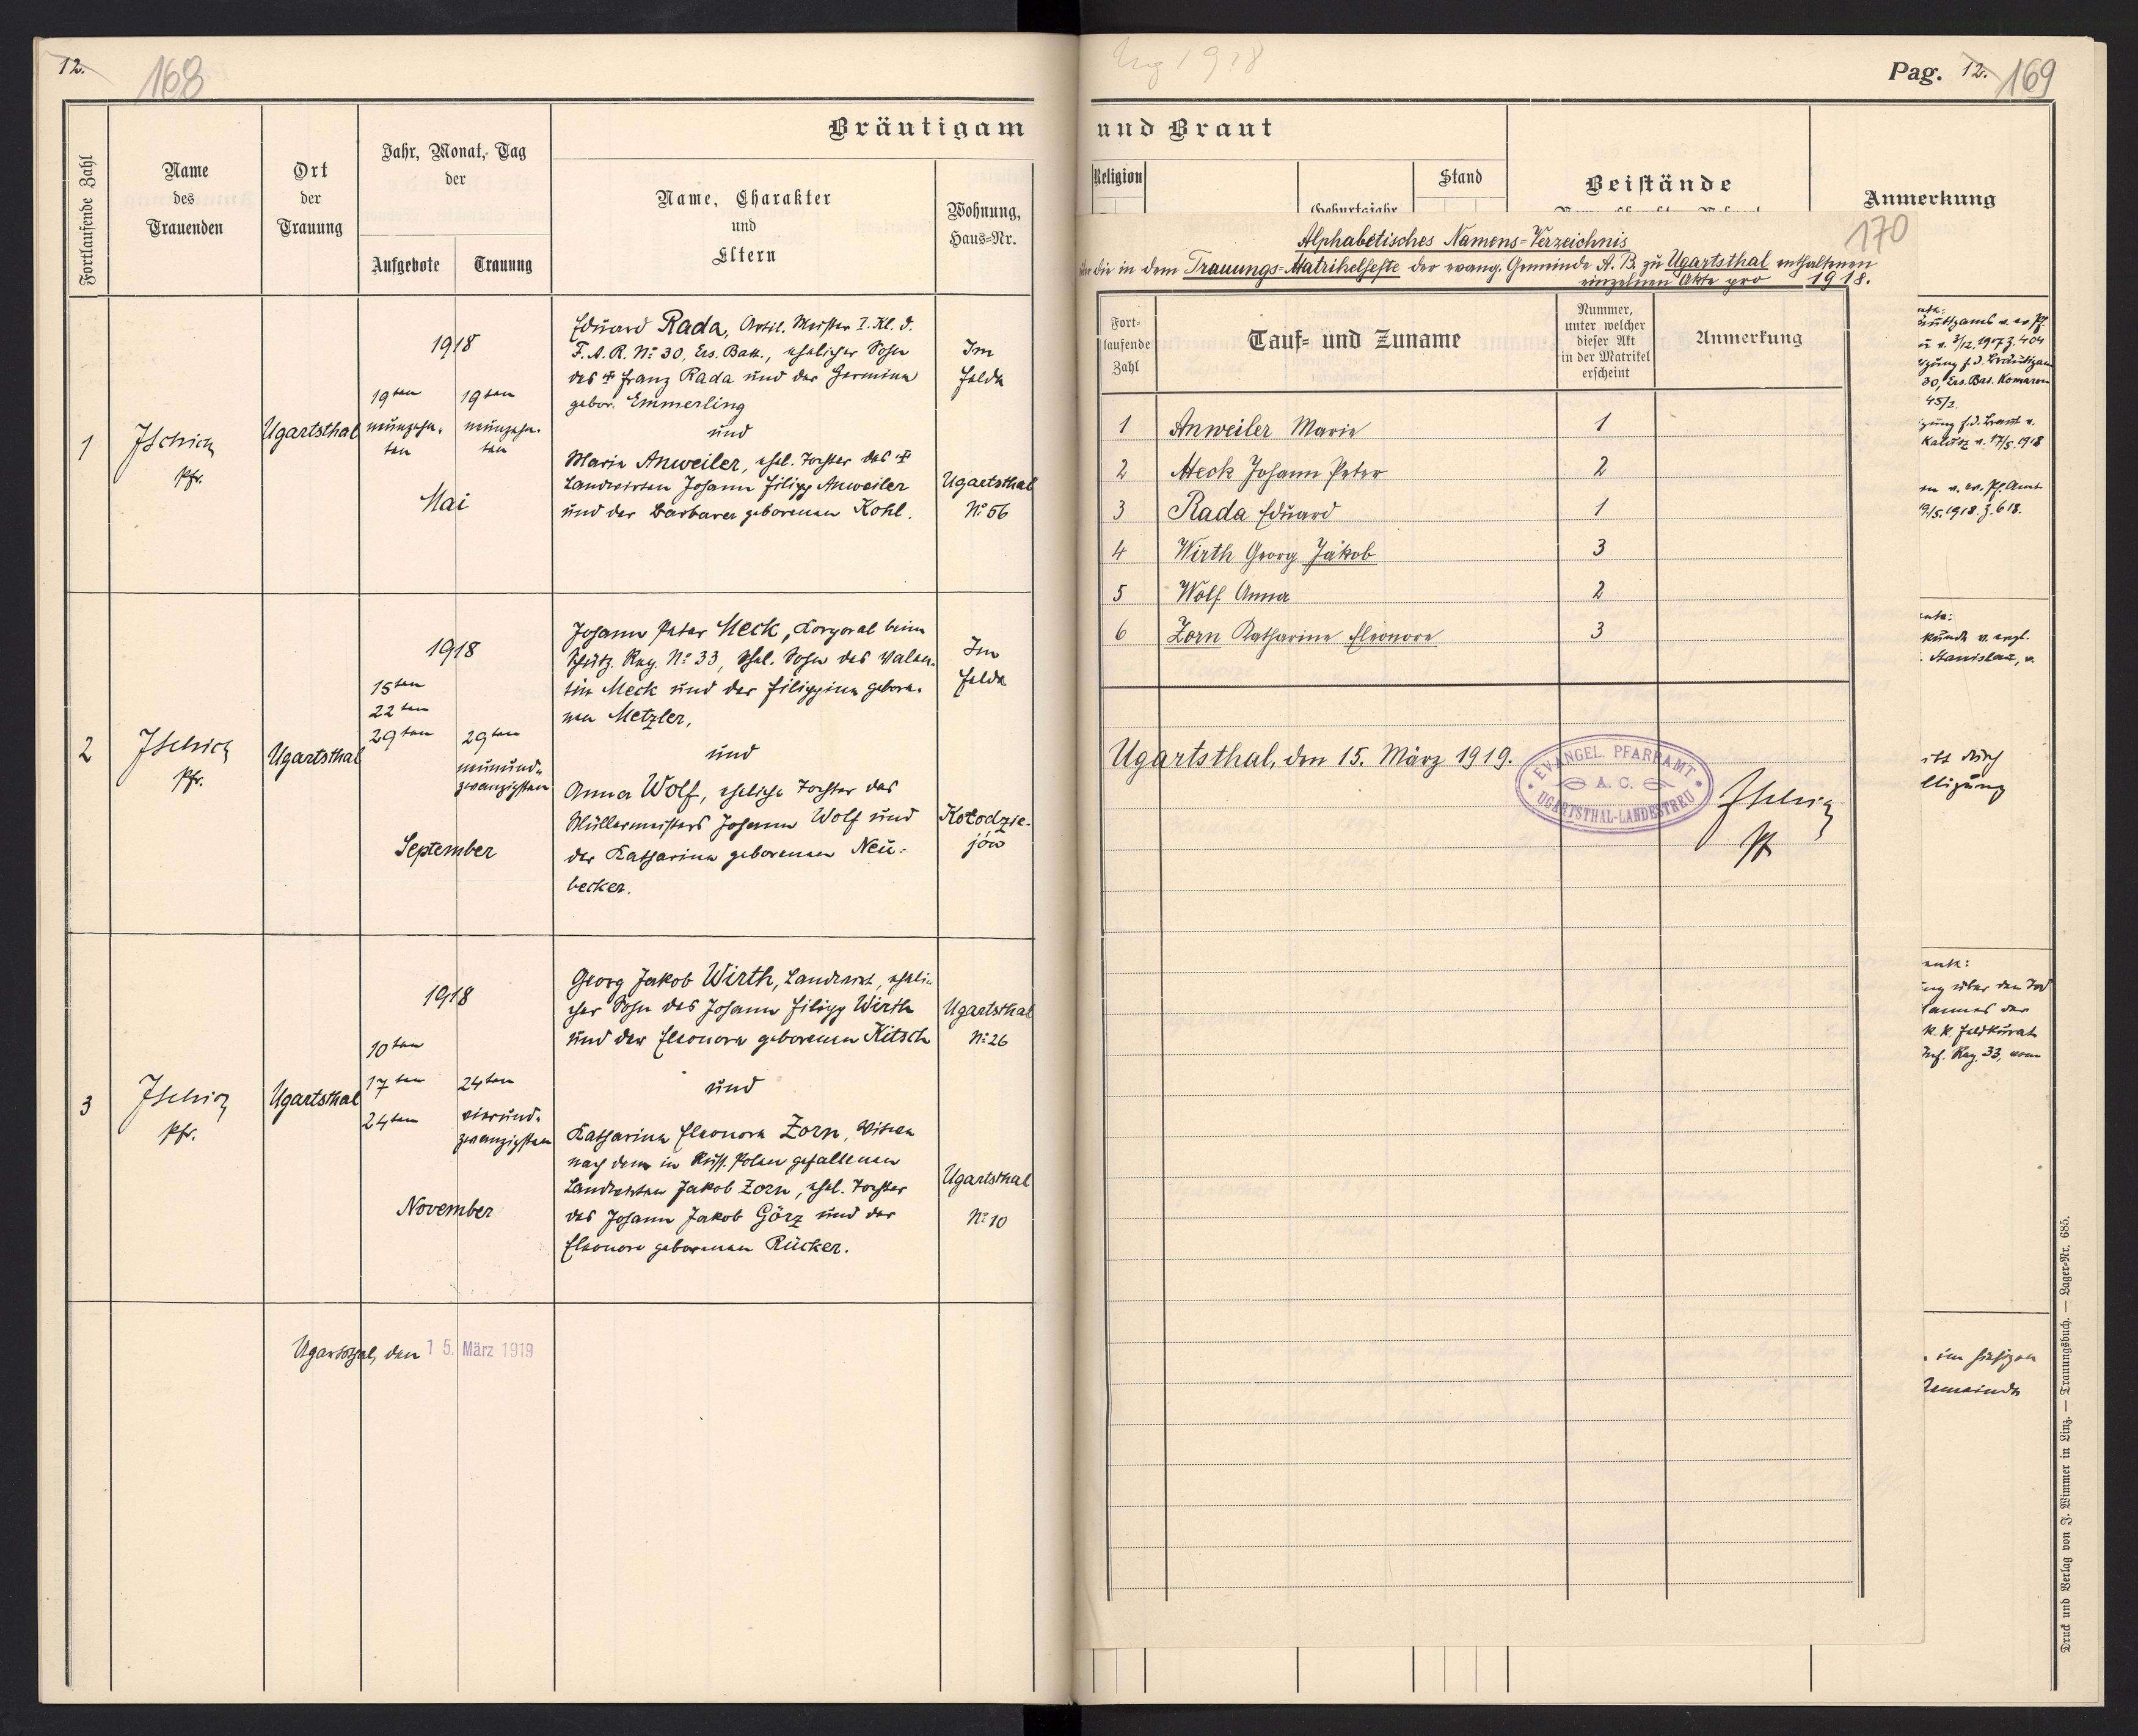 12.
168
Bräutigam
Fortlaufende Zahl
Name
des
Trauenden
Ort
der
Trauung
Jahr, Monat, Tag
der
Aufgebote
Trauung
Name, Charakter
und
Eltern
Wohnung,
Haus-Nr.
1
Pfr.
Ugartsthal
1918
19ten
neunzehn-
ten
19ten
neunzehn-
ten
Mai
Eduard Rada, Artil. Meister I. Kl. d.
F. A. R. No 30, Ers. Batt., ehelicher Sohn
des † Franz Rada und der Hermine
gebor. Emmerling
und
Marie Anweiler, ehel. Tochter des †
Landwirten Johann Filipp Anweiler
und der Barbara geborenen Kohl.
Im
Felde
Ugartsthal
No 56
2
Pfr.
Ugartsthal
1918
15ten
22ten
29ten
29ten
neunund-
zwanzigsten
September
Johann Peter Heck, Korporal beim
Schütz. Reg. No 33, ehel. Sohn des Valen-
tin Heck und der Filippine gebore-
nen Metzler,
und
Anna Wolf, eheliche Tochter des
Müllermeisters Johann Wolf und
der Katharina geborenen Neu-
becker.
Im
Felde
Kołodzie-
jów
3
Pfr.
Ugartsthal
1918
10ten
17ten
24ten
24ten
vierund-
zwanzigsten
November
Georg Jakob Wirth, Landwirt, eheli-
cher Sohn des Johann Filipp Wirth
und der Eleonore geborenen Kitsch
und
Katharina Eleonora Zorn, Witwe
nach dem in Russ. Polen gefallenen
Landwirten Jakob Zorn, ehel. Tochter
des Johann Jakob Görz und der
Eleonore geborenen Rücker.
Ugartsthal
No 26
Ugartsthal
No 10
Ugartsthal, den 15. März 1919
Ug 1918
Pag. 12. 169
und Braut
Religion
Geburtsjahr
Stand
Beistände
Anmerkung
170
Alphabetisches Namens-Verzeichnis
die in dem Trauungs-Matrikelhefte der evang. Gemeinde A. B. zu Ugartsthal enthaltenen
einzelnen Akte pro 1918.
Fort-
laufende
Zahl
Tauf- und Zuname
Nummer,
unter welcher
dieser Akt
in der Matrikel
erscheint
Anmerkung
1 Anweiler Marie 1
2 Heck Johann Peter 2
3 Rada Eduard 1
4 Wirth Georg Jakob 3
5 Wolf Anna 2
6 Zorn Katharine Eleonore 3
Ugartsthal, den 15. März 1919.
EVANGEL. PFARRAMT
A. C.
UGARTSTHAL-LANDESTREU
Pf
30, Ers. Bat. Komarom
45/2
Kalusz v. 17/5. 1918
v. ev. Pf. Amt
9/5. 1918. Z. 618.
Stanislau, v.
durch
über den Tod
der
k. k. Feldkurat
Inf. Reg. 33, vom
im hiesigen
Gemeinde
Druck und Verlag von J. Wimmer in Linz. — Trauungsbuch. — Lager-Nr. 685.